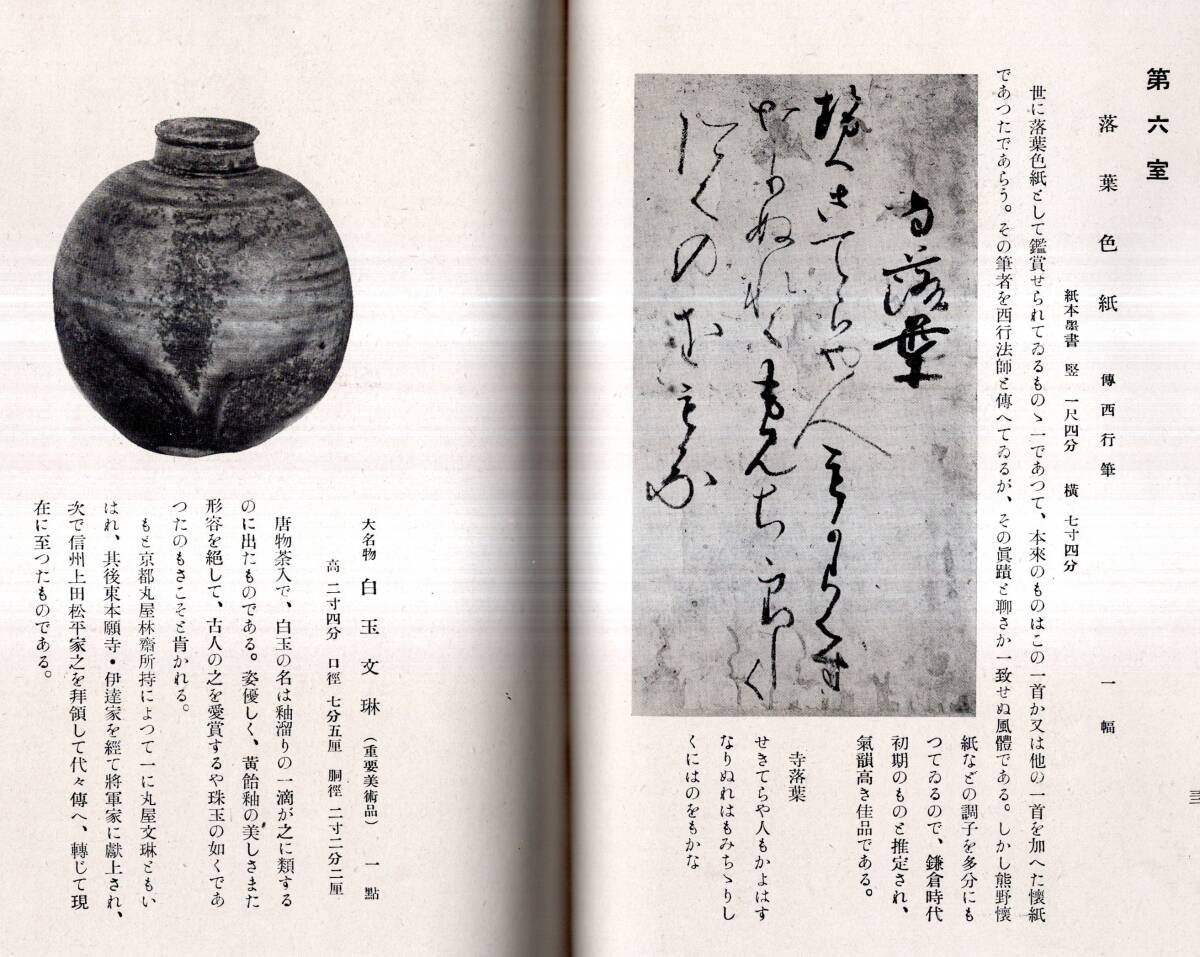 第六室
落葉色紙 傳西行筆 一幅
紙本墨書 竪 一尺四分 橫 七寸四分
世に落葉色紙として鑑賞せられてゐるものゝ一であつて、本來のものはこの一首か又は他の一首を加へた懷紙
であつたであらう。その筆者を西行法師と傳へてゐるが、その眞蹟と聊さか一致せぬ風體である。しかし熊野懷
紙などの調子を多分にも
つてゐるので、鎌倉時代
初期のものと推定され、
氣韻高き佳品である。
寺落葉
せきてらや人もかよはす
なりぬれはもみちゝりし
くにはのをもかな
大名物 白玉文琳（重要美術品） 一點
高 二寸四分 口徑 七分五厘 胴徑 二寸二分二厘
唐物茶入で、白玉の名は釉溜りの一滴が之に類する
のに出たものである。姿優しく、黃飴釉の美しさまた
形容を絕して、古人の之を愛賞するや珠玉の如くであ
つたのもさこそと肯かれる。
もと京都丸屋林齋所持によつて一に丸屋文琳ともい
はれ、其後東本願寺・伊達家を經て將軍家に獻上され、
次で信州上田松平家之を拜領して代々傳へ、轉じて現
在に至つたものである。